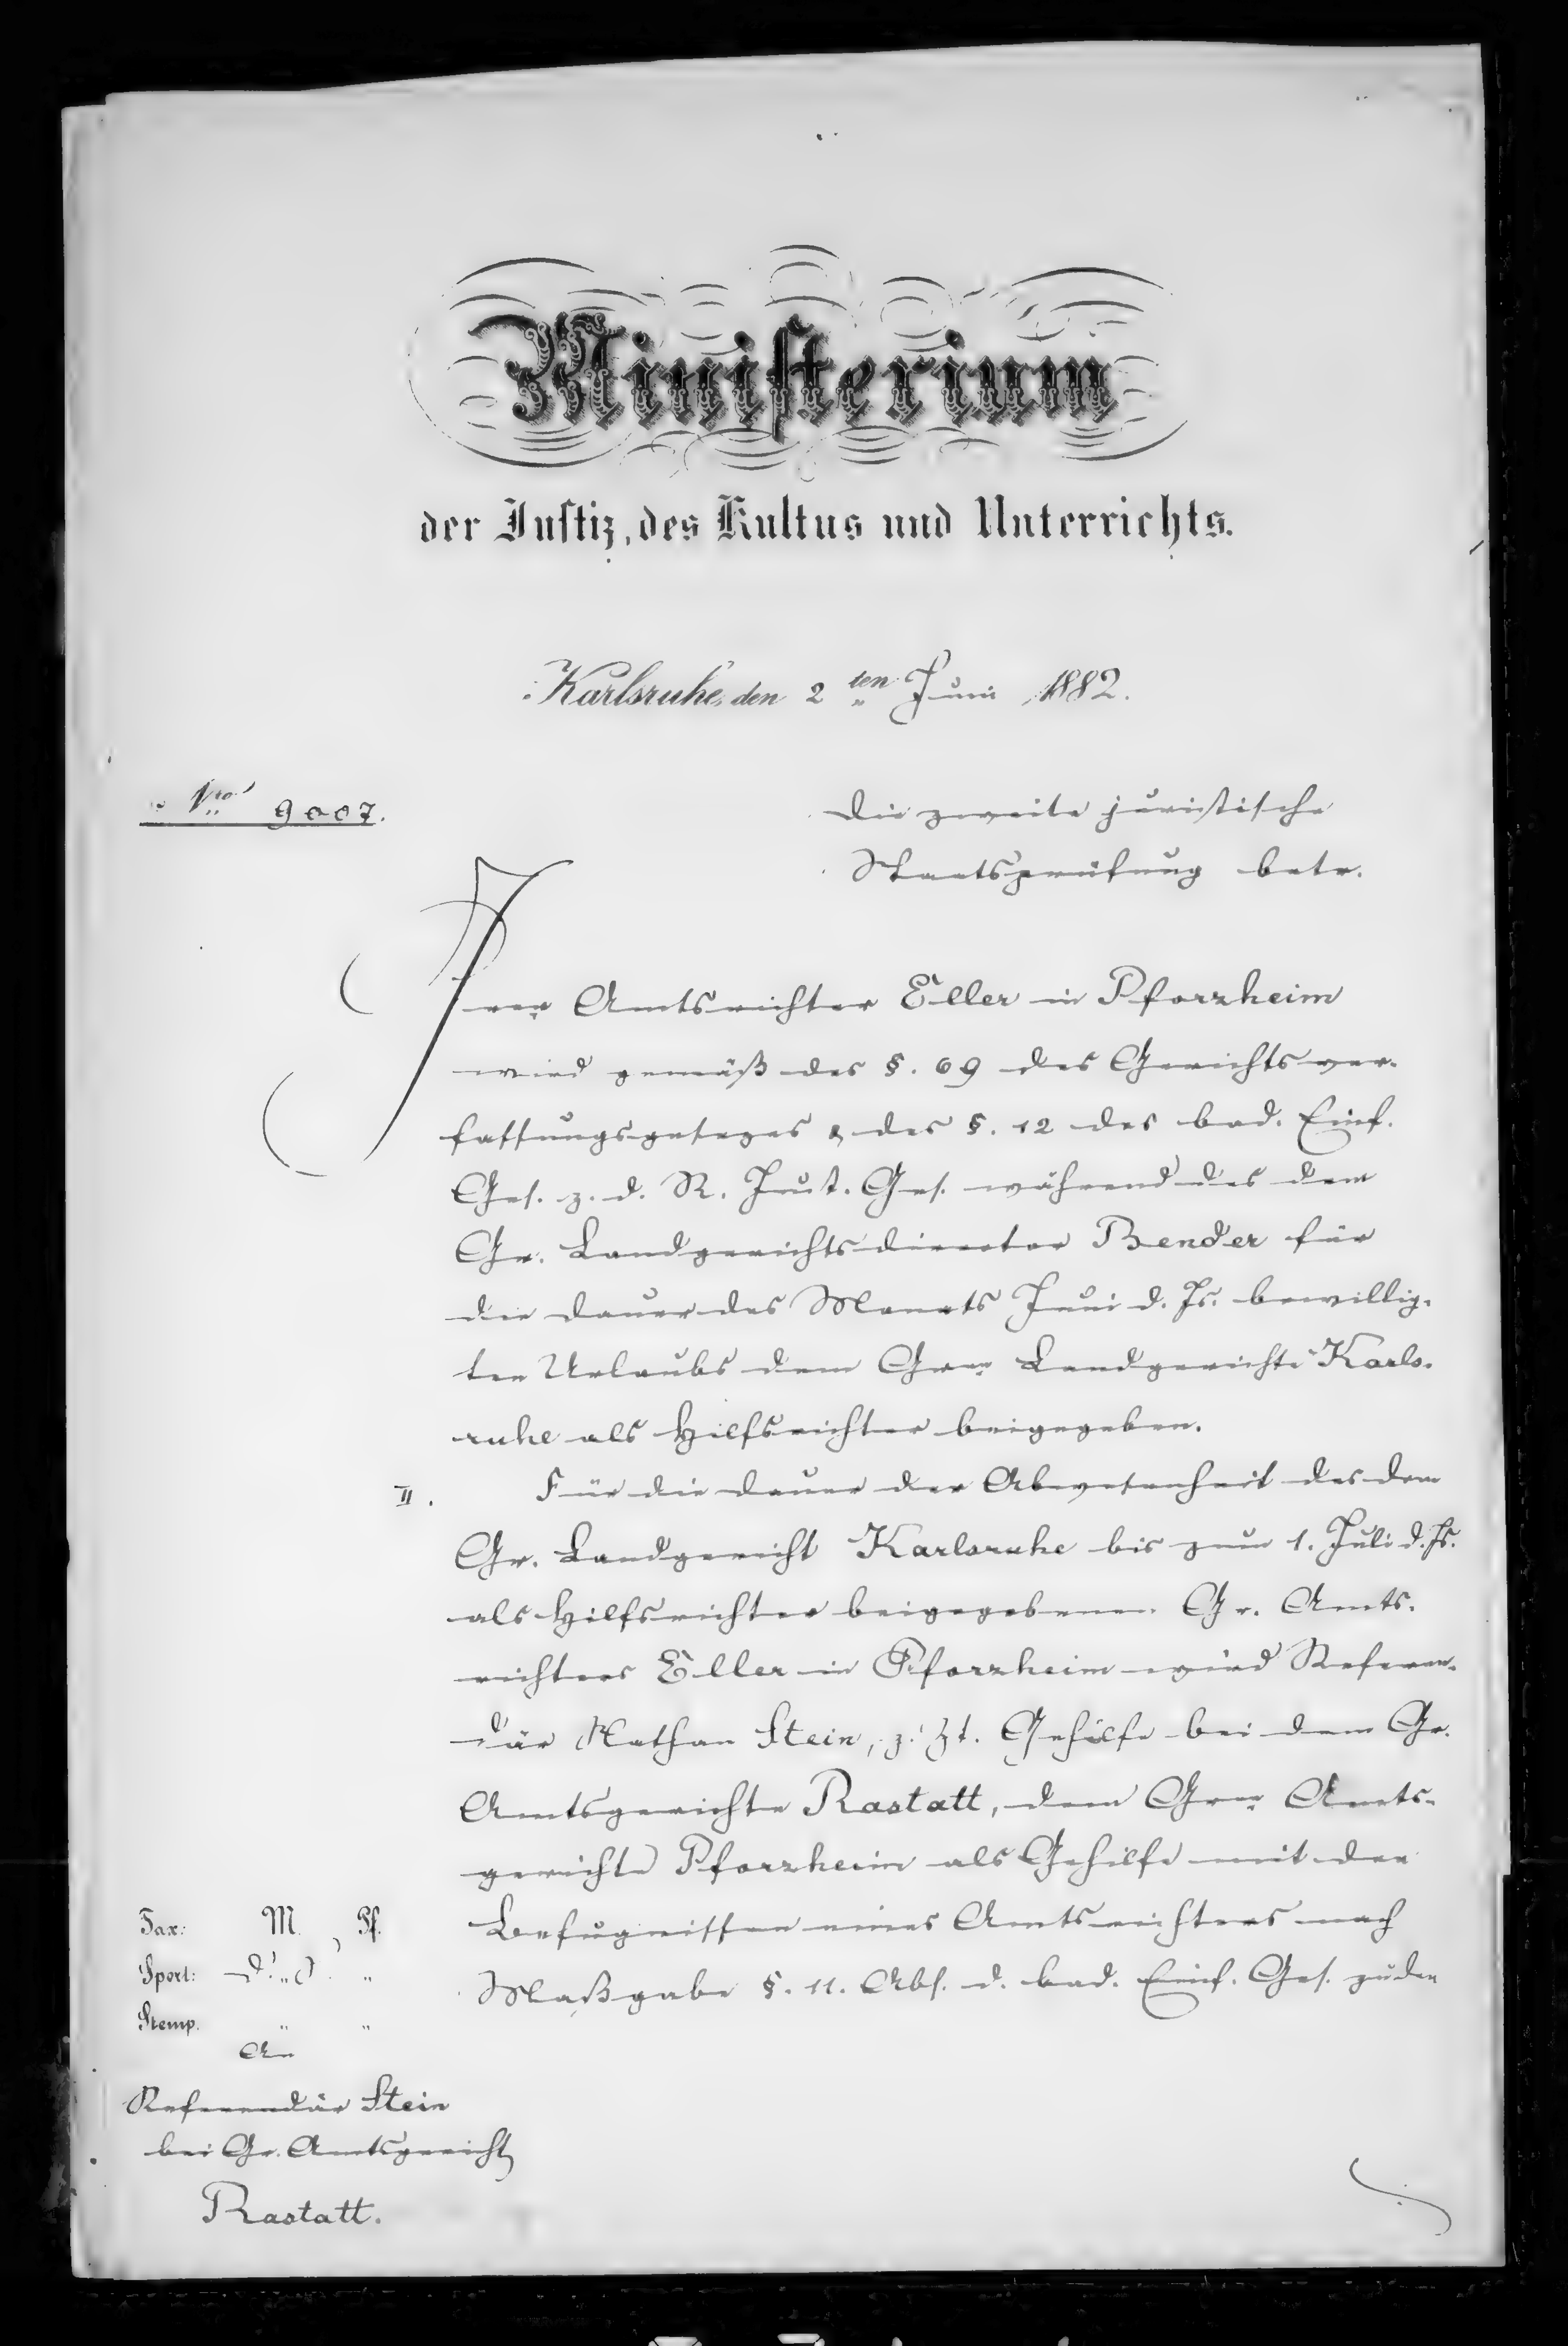 Ministerium
der Justiz, des Kultus und Unterrichts.
Karlsruhe, den 2ten Juni 1882.
Nro 9007.
Die zweite juristische
Staatsprüfung betr.
Amtsrichter Eller in Pforzheim
wird gemäß des §. 69 des Gerichtsver-
fassungsgesezes & des §. 12 des bad. Einf.
Ges. z. d. R. Just. Ges. während des dem
Gr. Landgerichtsdirector Bender für
die Dauer des Monats Juni d. Js. bewillig-
ten Urlaubs dem Landgerichte Karls-
ruhe als Hilfsrichter beigegeben.
II. Für die Dauer der Abwesenheit des dem
Gr. Landgericht Karlsruhe bis zum 1. Juli d. Js.
als Hilfsrichter beigegebenen Gr. Amts-
richters Eller in Pforzheim wird Referen-
där Nathan Stein, z. Zt. Gehilfe bei dem Gr.
Amtsgerichte Rastatt, dem Amts-
gerichte Pforzheim als Gehilfe mit den
Befugnissen eines Amtsrichters nach
Maßgabe §. 11. Abs. d. bad. Einf. Ges. zu den
Tax: M. Pf.
Sport: " "
Stemp. " "
An
Referendär Stein
bei Gr. Amtsgericht
Rastatt.